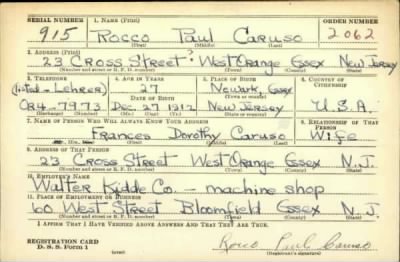 SERIAL NUMBER 1. NAME (Print) ORDER NUMBER
915 Rocco Paul Caruso 2062
(First) (Middle) (Last)
2. ADDRESS (Print)
23 Cross Street West Orange Essex New Jersey
(Number and street or R. F. D. number) (Town) (County) (State)
3. TELEPHONE 4. AGE IN YEARS 5. PLACE OF BIRTH 6. COUNTRY OF CITIZENSHIP
(Listed - Lehrer) 27 Newark, Essex
DATE OF BIRTH (Town or county)
OR4-7973 Dec. 27 1912 New Jersey U.S.A.
(Exchange) (Number) (Mo.) (Day) (Yr.) (State or country)
7. NAME OF PERSON WHO WILL ALWAYS KNOW YOUR ADDRESS 8. RELATIONSHIP OF THAT PERSON
Frances Dorothy Caruso Wife
(Mr., Mrs., Miss) (First) (Middle) (Last)
9. ADDRESS OF THAT PERSON
23 Cross Street West Orange Essex N.J.
(Number and street or R. F. D. number) (Town) (County) (State)
10. EMPLOYER'S NAME
Walter Kidde Co. - machine shop
11. PLACE OF EMPLOYMENT OR BUSINESS
60 West Street Bloomfield Essex N.J.
(Number and street or R. F. D. number) (Town) (County) (State)
I AFFIRM THAT I HAVE VERIFIED ABOVE ANSWERS AND THAT THEY ARE TRUE.
REGISTRATION CARD
D. S. S. Form 1 (over) Rocco Paul Caruso
(Registrant's signature)